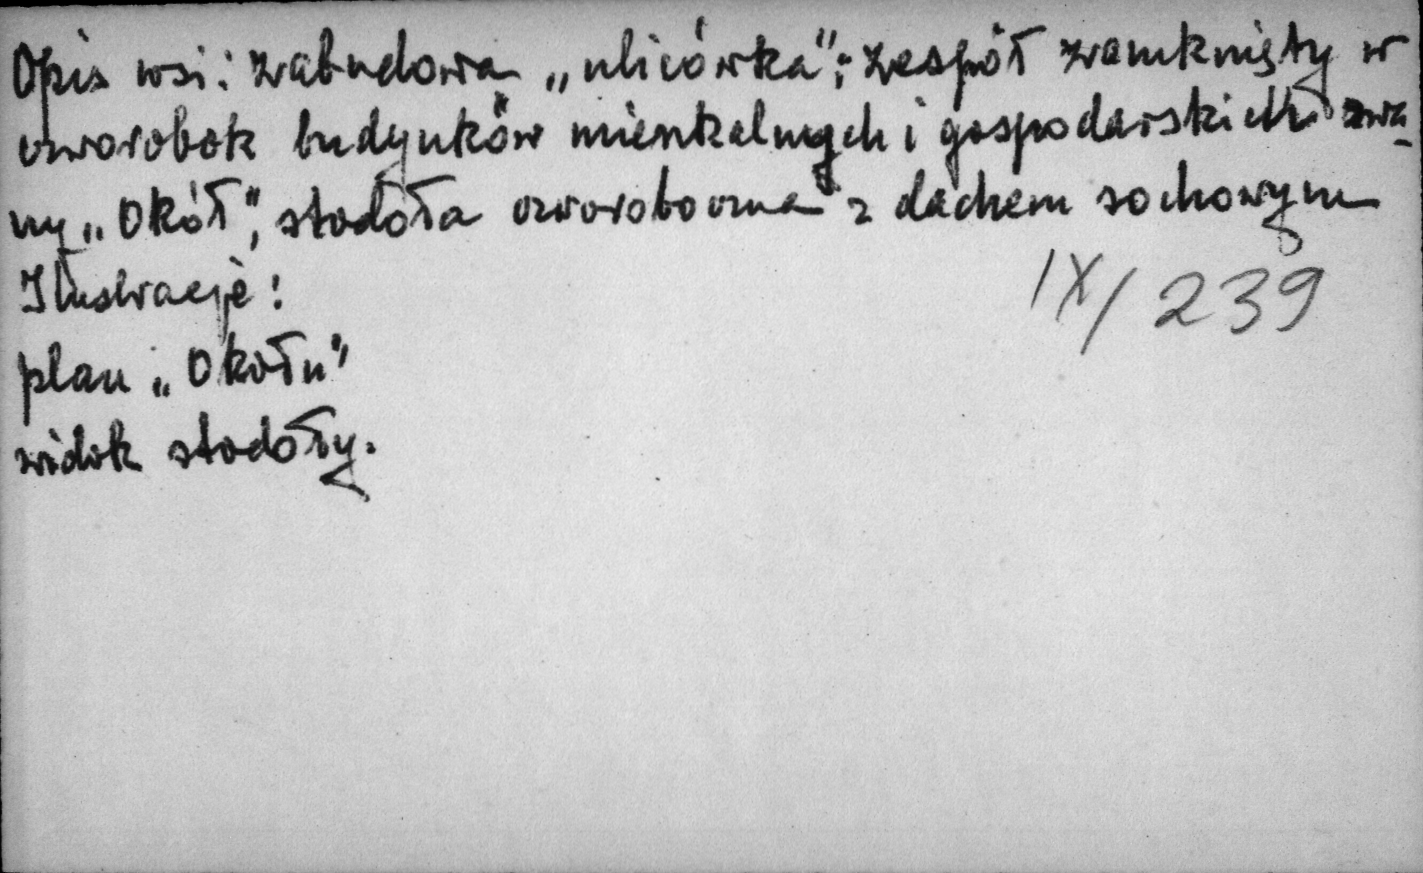 Opis wsi: zabudowa „ulicówka"; zespół zamknięty w
czworobok budynków mieszkalnych i gospodarskich zwa-
ny „Okół", stodoła czworoboczna z dachem sochowym
Ilustracje:
IX/239
plan „Okołu"
widok stodoły.